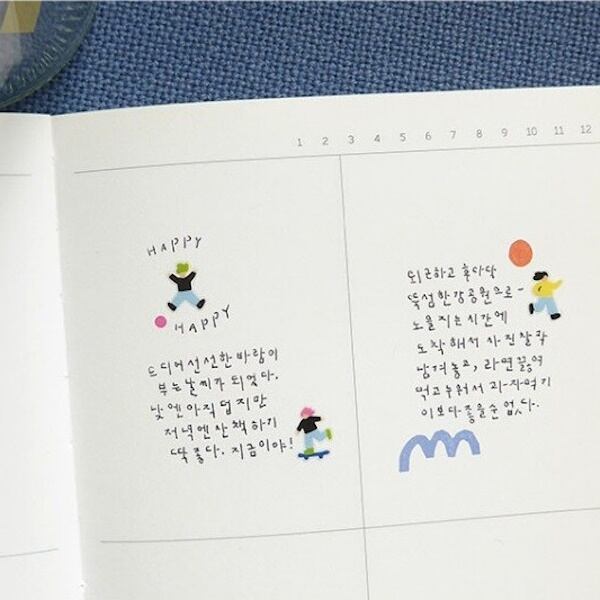 1 2 3 4 5 6 7 8 9 10 11 12
HAPPY
HAPPY
드디어 선선한 바람이
부는 날씨가 되었다.
낮엔 아직 덥지만
저녁엔 산책하기
딱 좋다. 지금이야!
퇴근하고 후다닥
뚝섬 한강공원으로-
노을지는 시간에
도착해서 사진 찰칵
남겨놓고, 라면 끓여
먹고 누워서 과-자먹기
이보다 좋을 순 없다.